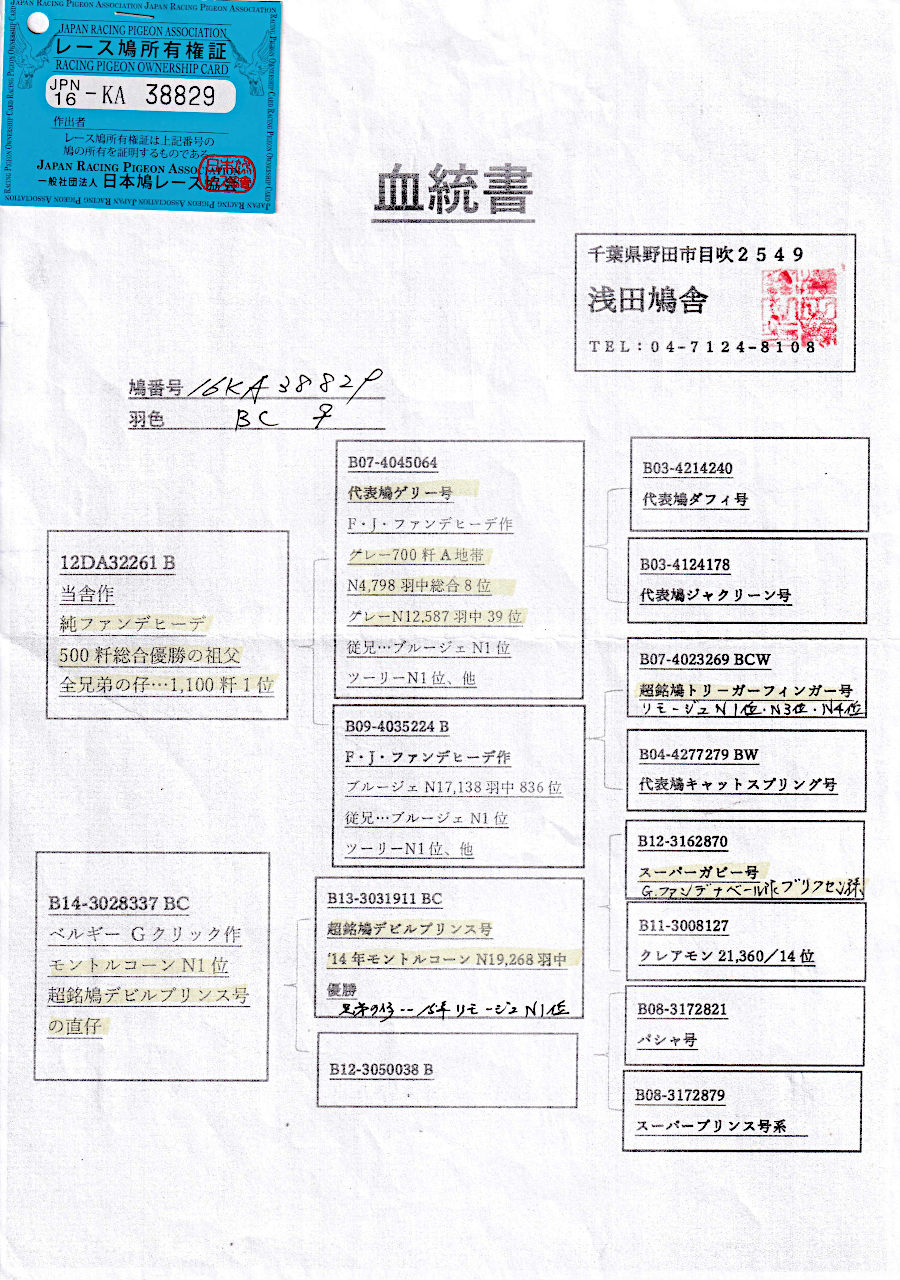 JAPAN RACING PIGEON ASSOCIATION
レース鳩所有権証
RACING PIGEON OWNERSHIP CARD
JPN
16 -KA 38829
作出者
レース鳩所有権証は上記番号の
鳩の所有を証明するものである
JAPAN RACING PIGEON ASSOCIATION
一般社団法人 日本鳩レース協会
血統書
千葉県野田市目吹2549
浅田鳩舎
TEL:04-7124-8108
鳩番号 16KA38829
羽色 BC ♀
12DA32261 B
当舎作
純ファンデヒーデ
500粁総合優勝の祖父
全兄弟の仔…1,100粁1位
B14-3028337 BC
ベルギー Gクリック作
モントルコーン N1位
超銘鳩デビルプリンス号
の直仔
B07-4045064
代表鳩ゲリー号
F・J・ファンデヒーデ作
グレー700粁A地帯
N4,798羽中総合8位
グレーN12,587羽中39位
従兄…ブルージェN1位
ツーリーN1位、他
B09-4035224 B
F・J・ファンデヒーデ作
ブルージェ N17,138羽中836位
従兄…ブルージェ N1位
ツーリーN1位、他
B13-3031911 BC
超銘鳩デビルプリンス号
'14年モントルコーン N19,268羽中
優勝
リモージュ N1位
B12-3050038 B
B03-4214240
代表鳩ダフィ号
B03-4124178
代表鳩ジャクリーン号
B07-4023269 BCW
超銘鳩トリーガーフィンガー号
リモージュ N1位・N3位・N4位
B04-4277279 BW
代表鳩キャットスプリング号
B12-3162870
スーパーガビー号
G.ファンデナベール作
B11-3008127
クレアモン 21,360/14位
B08-3172821
パシャ号
B08-3172879
スーパープリンス号系